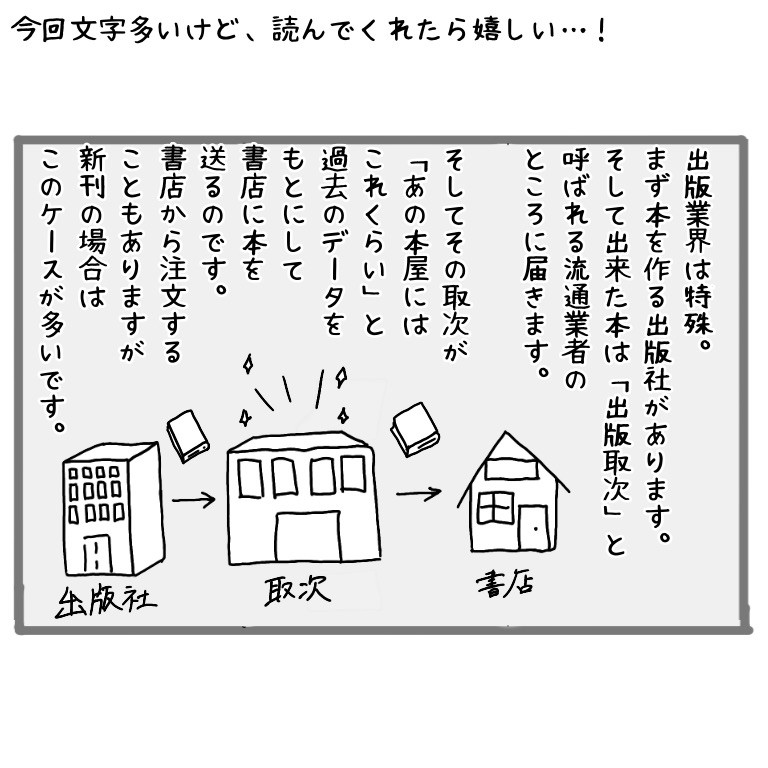 今回文字多いけど、読んでくれたら嬉しい…！
出版業界は特殊。
まず本を作る出版社があります。
そして出来た本は「出版取次」と
呼ばれる流通業者の
ところに届きます。
そしてその取次が
「あの本屋には
これくらい」と
過去のデータを
もとにして
書店に本を
送るのです。
書店から注文する
こともありますが
新刊の場合は
このケースが多いです。
出版社
取次
書店